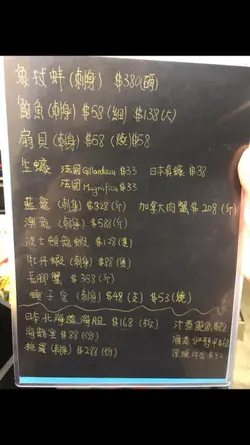 象拔蚌 (刺身) $380 (磅)
鮑魚 (刺身) $58 (細) $138 (大)
扇貝 (刺身) $58 (燒) $58
生蠔 法國Gillardeau $33 日本真蠔 $38
法國Magnifica $33
藍龍 (刺身) $328 (斤) 加拿大肉蟹 $208 (斤)
澳龍 (刺身) $588 (斤)
波士頓龍蝦 $178 (隻)
牡丹蝦 (刺身) $88 (隻)
長腳蟹 $358 (斤)
蟶子皇 (刺身) $48 (支) $53 (燒)
日本北海道海胆 $168 (板)
海戟皇 $88 (份)
(刺身) $288 (份)